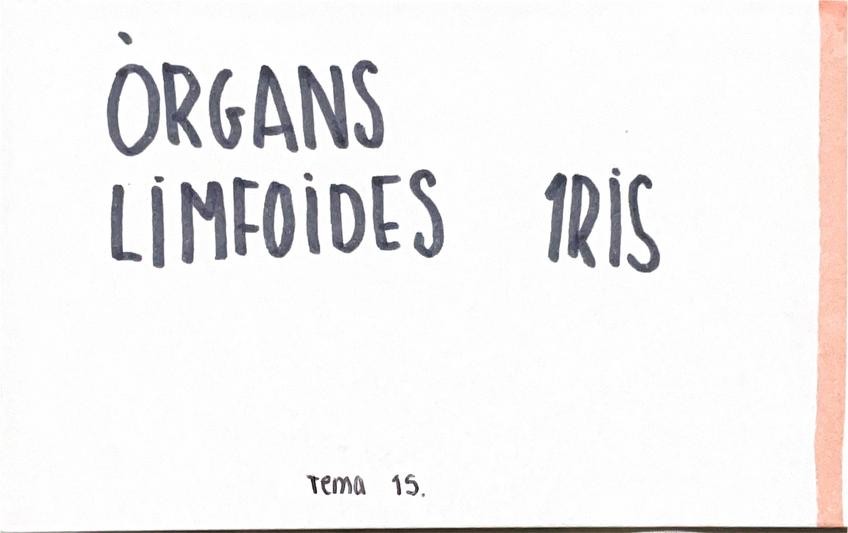 ÒRGANS
LIMFOIDES 1RIS
Tema 15.